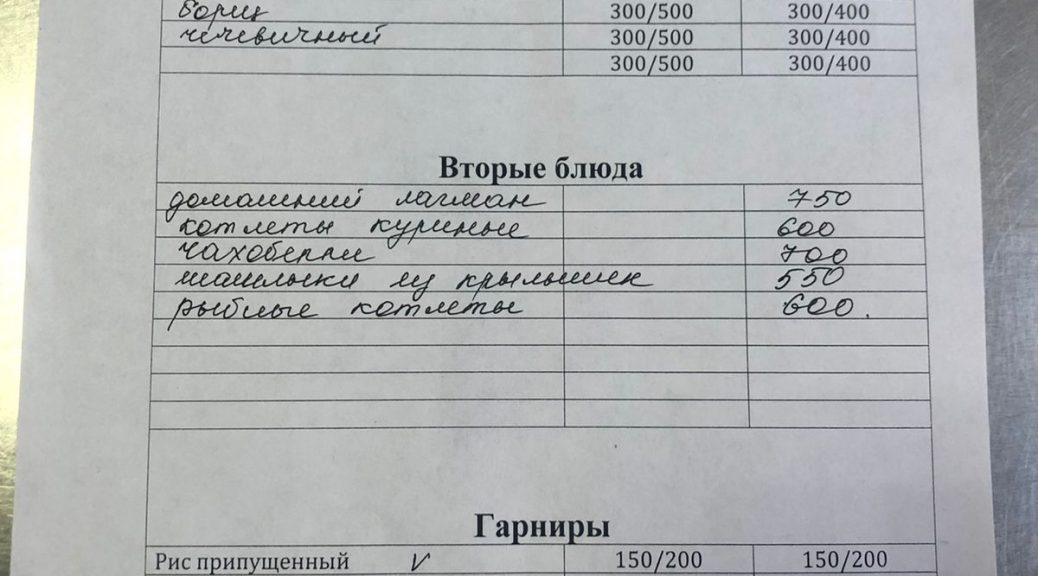 борщ 300/500 300/400
чечевичный 300/500 300/400
300/500 300/400
Вторые блюда
домашний лагман 750
котлеты куриные 600
чахобелли 700
шашлыки из крылышек 550
рыбные котлеты 600.
Гарниры
Рис припущенный V 150/200 150/200